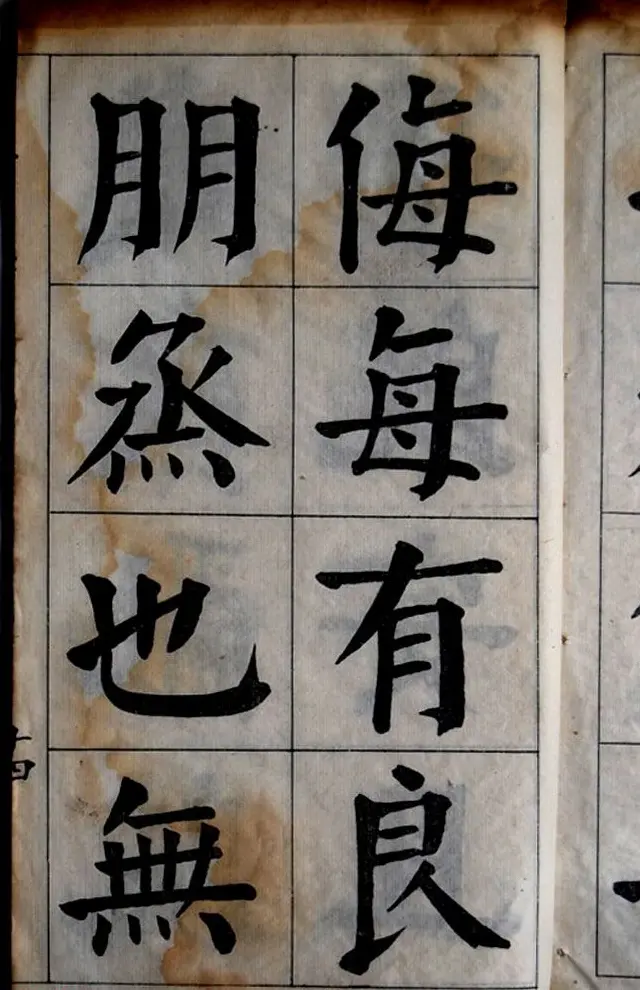 侮每有良
朋烝也無